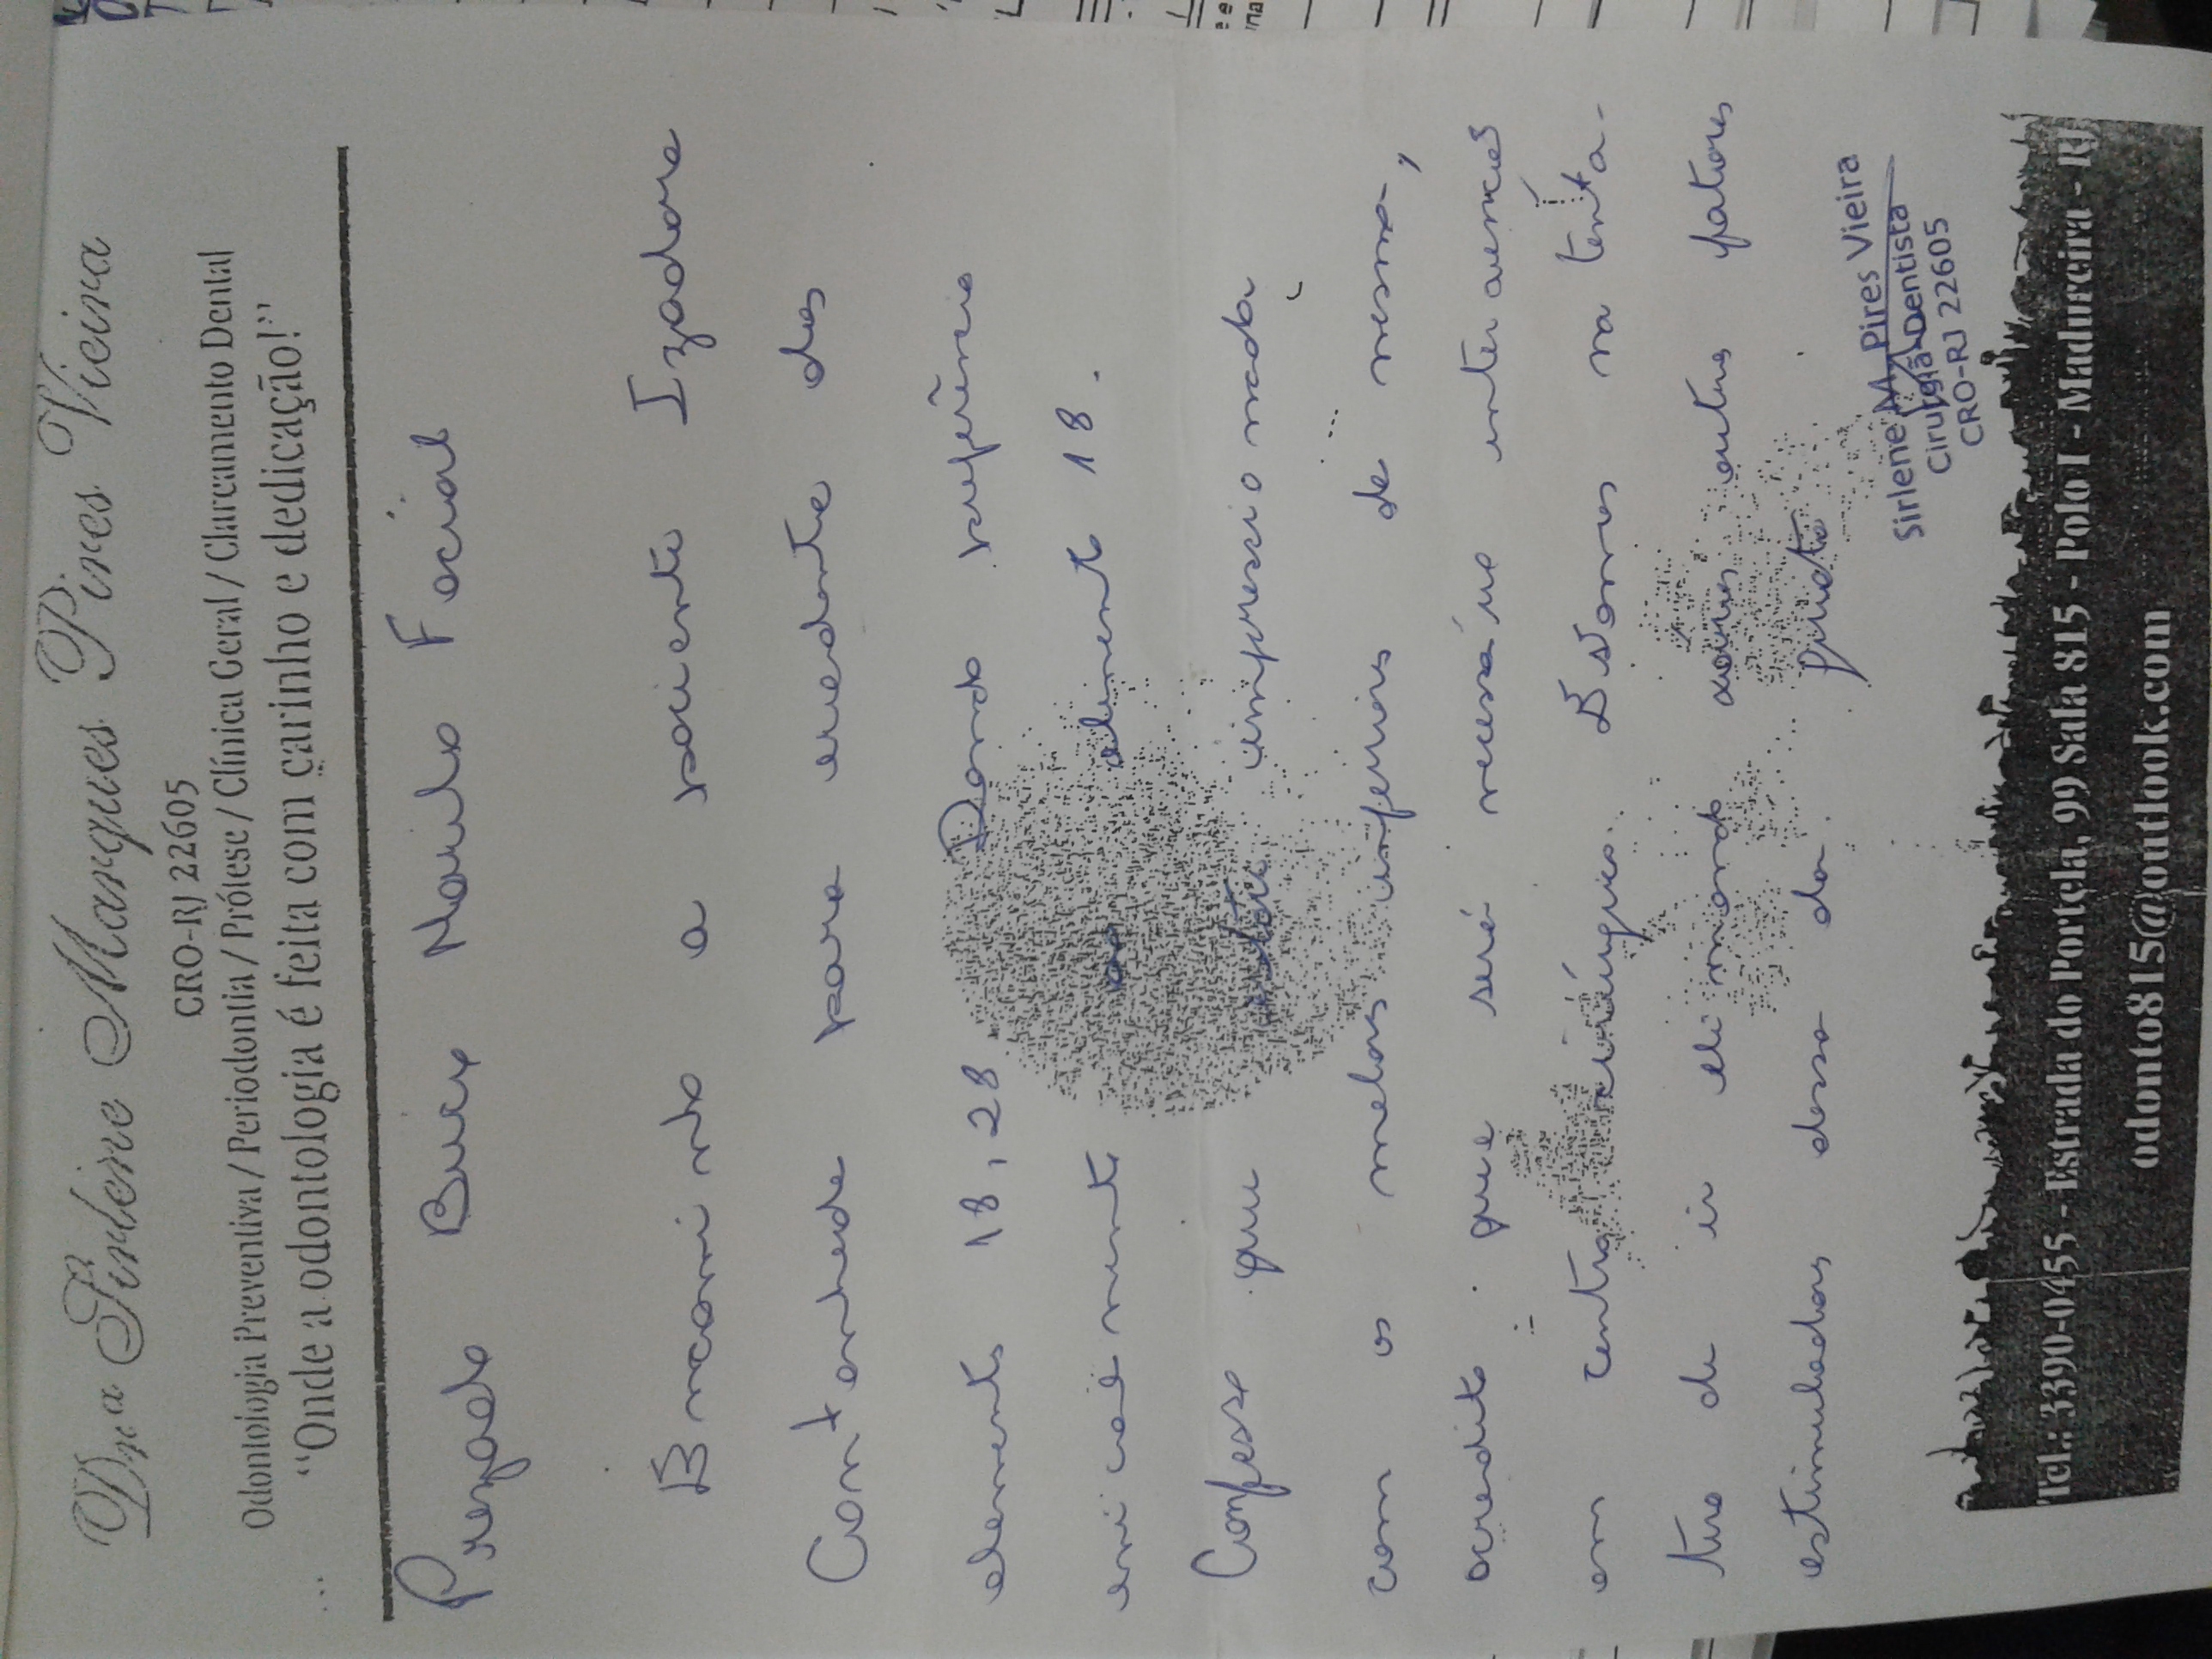 Drª Sirlene Marques Pires Vieira
CRO-RJ 22605
Odontologia Preventiva / Periodontia / Prótese / Clínica Geral / Clareamento Dental
“Onde a odontologia é feita com carinho e dedicação!”
Prezado Buco Maxilo Facial
Encaminho a paciente Izadora
Contanhede para exodontia dos
elementos 18, 28. Dando preferência
inicialmente ao elemento 18.
Confesso que estou impressionada
com os molares inferiores da mesma,
acredito que será necessário intervenção
em centro cirúrgico. Estamos na tenta-
tiva de ir eliminando vários outros fatores
estimuladores dessa dor. Grata
Sirlene M. Pires Vieira
Cirurgiã-Dentista
CRO-RJ 22605
Tel.: 3390-0455 - Estrada do Portela, 99 Sala 815 - Polo I - Madureira - RJ
odonto815@outlook.com